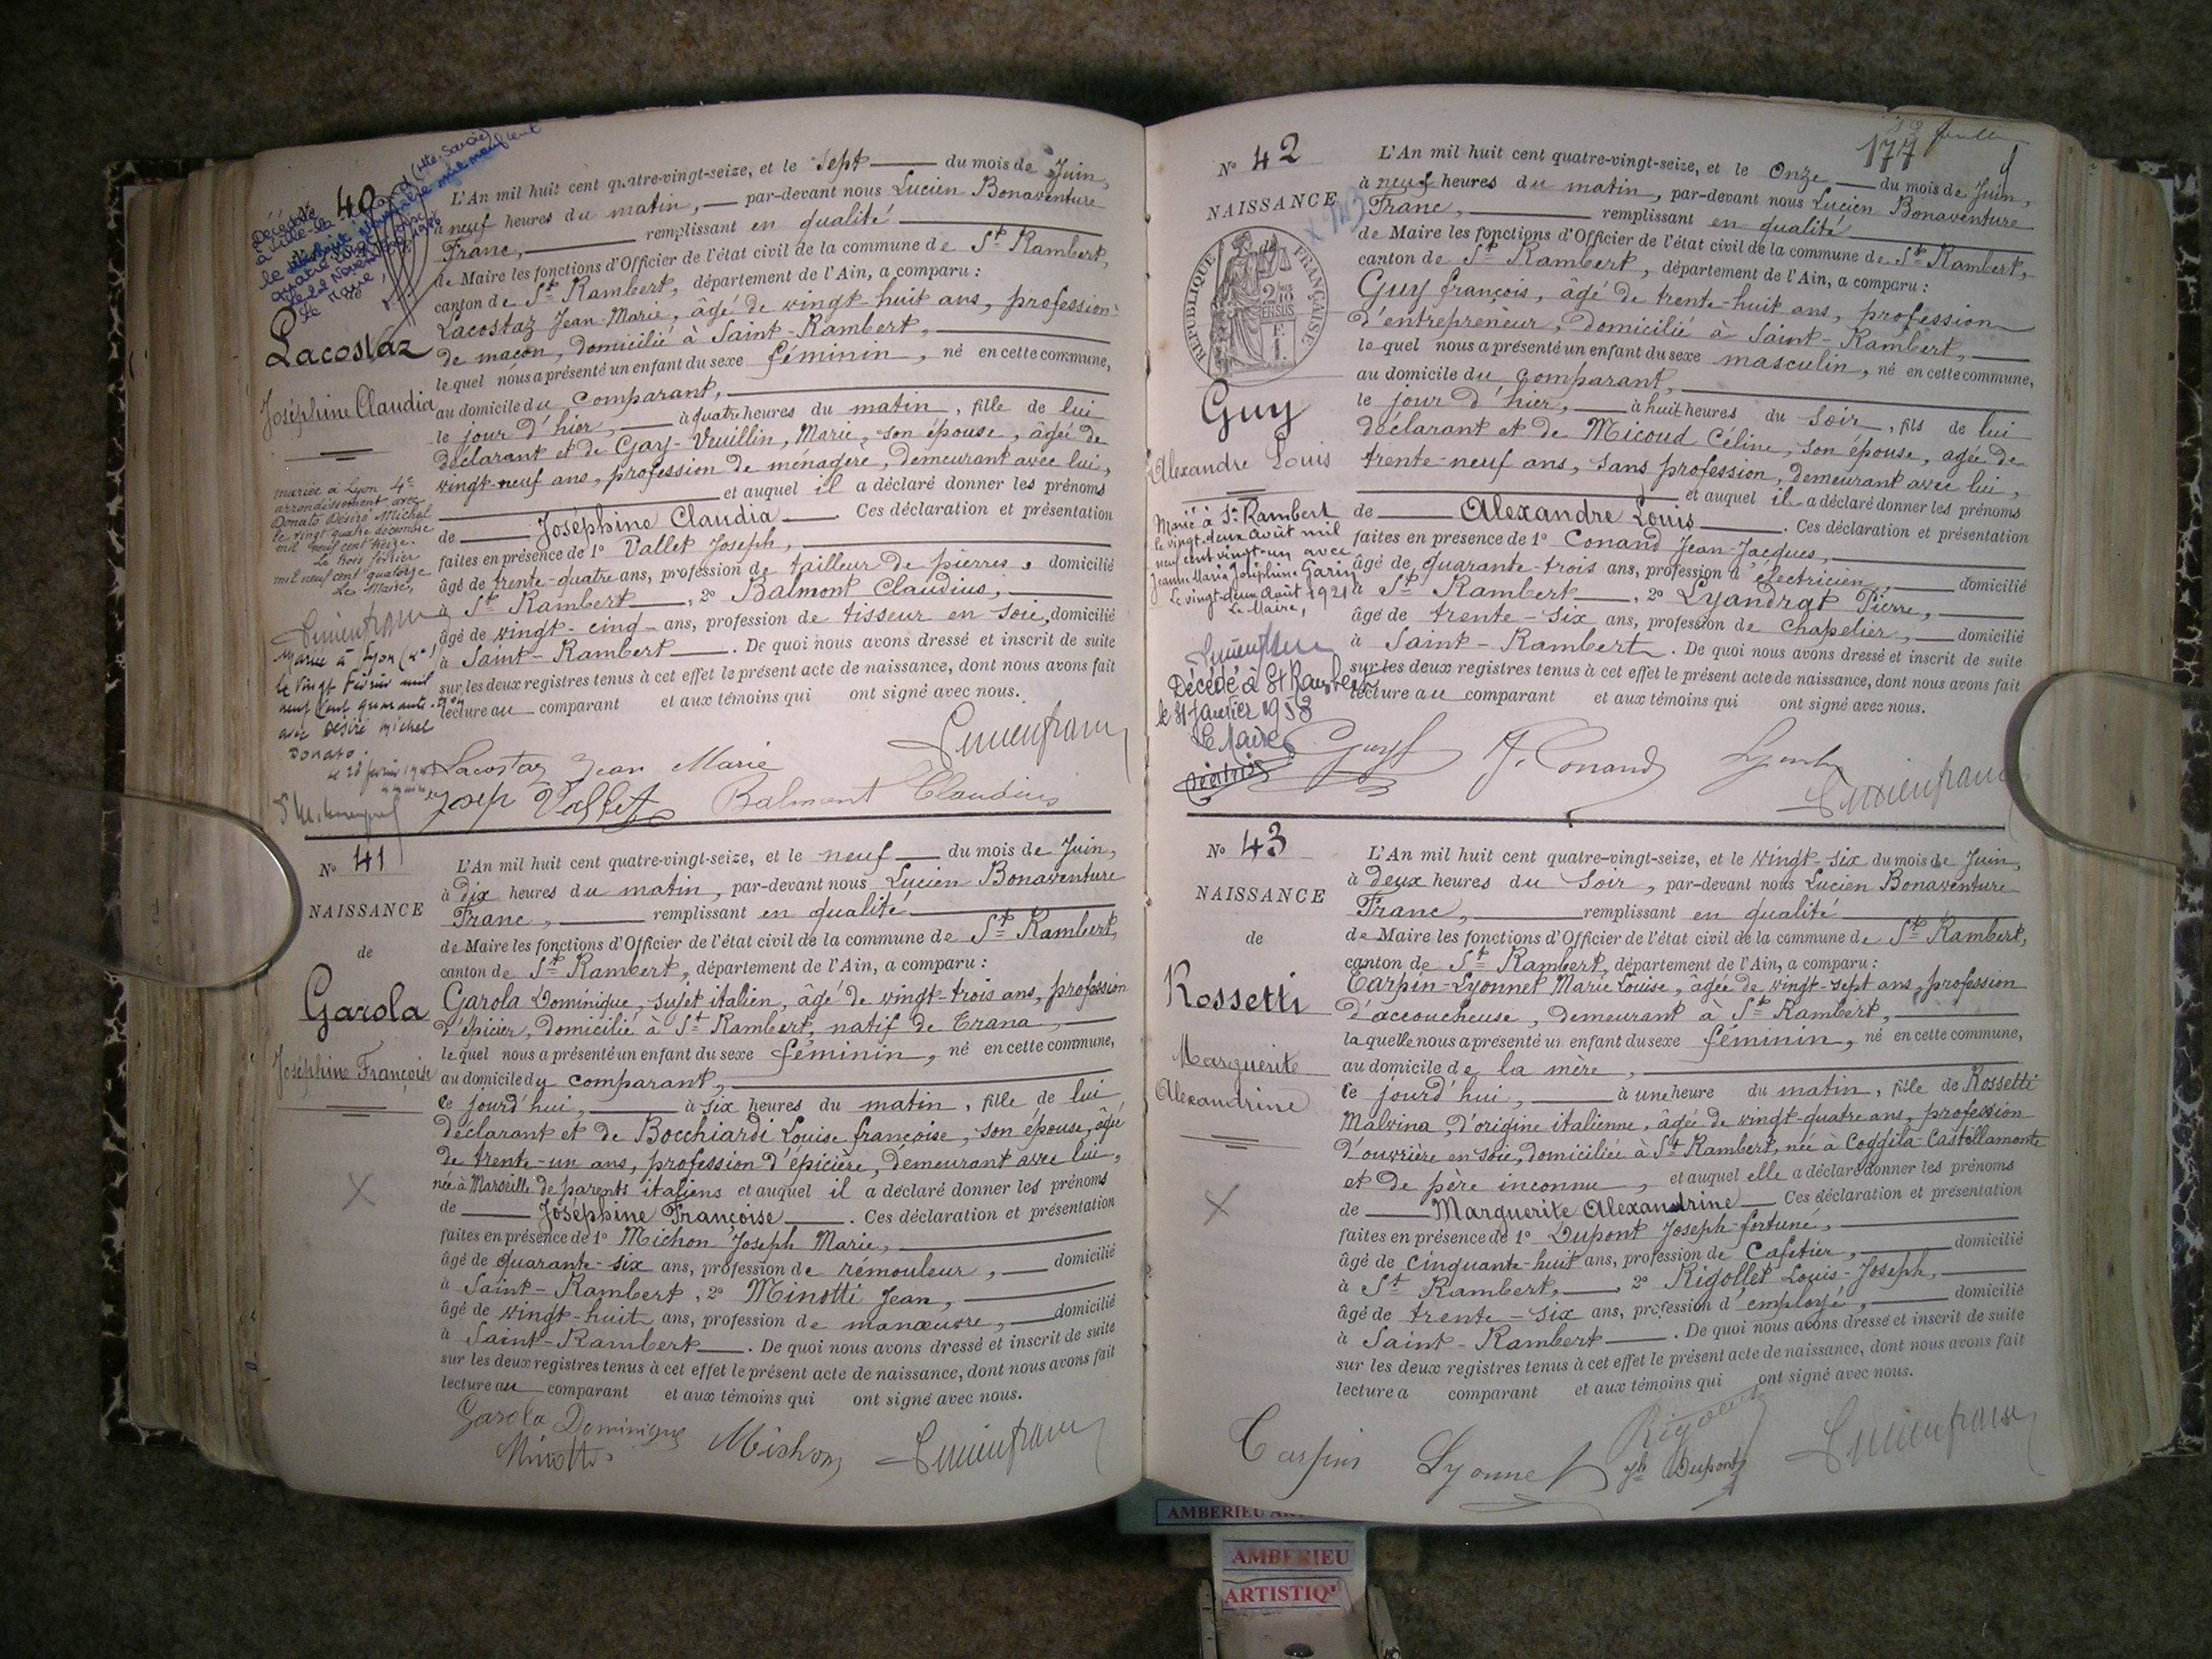 Nº 40
Décédée
à Ville-la-Grand (Hte-Savoie)
Le Maire,
Lacostaz
Joséphine Claudia
mariée à Lyon 4e
arrondissement avec
Donato Désiré Michel
le vingt quatre décembre
mil neuf cent treize.
Le trois février
mil neuf cent quatorze
Le Maire,
Mariée à Lyon
le vingt Février mil
neuf cent quarante
avec Désiré Michel
Donato.
L'An mil huit cent quatre-vingt-seize, et le Sept du mois de Juin,
à neuf heures du matin, par-devant nous Lucien Bonaventure
Franc, remplissant en qualité
de Maire les fonctions d'Officier de l'état civil de la commune de St Rambert,
canton de St Rambert, département de l'Ain, a comparu :
Lacostaz Jean-Marie, âgé de vingt-huit ans, profession
de maçon, domicilié à Saint-Rambert,
lequel nous a présenté un enfant du sexe féminin, né en cette commune,
au domicile du comparant,
le jour d'hier, à quatre heures du matin, fille de lui
déclarant et de Gay-Vuillin, Marie, son épouse, âgée de
vingt-neuf ans, profession de ménagère, demeurant avec lui,
et auquel il a déclaré donner les prénoms
de Joséphine Claudia Ces déclaration et présentation
faites en présence de 1º Vallet Joseph,
âgé de trente-quatre ans, profession de tailleur de pierres, domicilié
à St Rambert, 2º Balmont Claudius,
âgé de vingt-cinq ans, profession de tisseur en soie, domicilié
à Saint-Rambert. De quoi nous avons dressé et inscrit de suite
sur les deux registres tenus à cet effet le présent acte de naissance, dont nous avons fait
lecture au comparant et aux témoins qui ont signé avec nous.
Lucien franc
Lacostaz Jean Marie
Josep Vallet Balmont Claudius
Nº 41
NAISSANCE
de
Garola
Joséphine Françoise
L'An mil huit cent quatre-vingt-seize, et le neuf du mois de Juin,
à dix heures du matin, par-devant nous Lucien Bonaventure
Franc, remplissant en qualité
de Maire les fonctions d'Officier de l'état civil de la commune de St Rambert,
canton de St Rambert, département de l'Ain, a comparu :
Garola Dominique, sujet italien, âgé de vingt-trois ans, profession
d'épicier, domicilié à St Rambert, natif de Trana,
lequel nous a présenté un enfant du sexe féminin, né en cette commune,
au domicile du comparant,
ce jourd'hui, à six heures du matin, fille de lui
déclarant et de Bocchiardi Louise françoise, son épouse, âgée
de trente-un ans, profession d'épicière, demeurant avec lui,
née à Marseille de parents italiens et auquel il a déclaré donner les prénoms
de Joséphine Françoise. Ces déclaration et présentation
faites en présence de 1º Michon Joseph Marie,
âgé de quarante-six ans, profession de rémouleur, domicilié
à Saint-Rambert, 2º Minotti Jean,
âgé de vingt-huit ans, profession de manœuvre, domicilié
à Saint-Rambert. De quoi nous avons dressé et inscrit de suite
sur les deux registres tenus à cet effet le présent acte de naissance, dont nous avons fait
lecture au comparant et aux témoins qui ont signé avec nous.
Garola Dominique
Minotti Michon Lucien franc
177
Nº 42
NAISSANCE
de
RÉPUBLIQUE FRANÇAISE
Guy
Alexandre Louis
Marié à St Rambert
le vingt-deux Août mil
neuf cent vingt-un avec
Jeanne Marie Joséphine Garin
Le vingt-deux Août 1921
Le Maire,
Lucien franc
Décédé à St Rambert
le 31 Janvier 1958
Le Maire
L'An mil huit cent quatre-vingt-seize, et le Onze du mois de Juin,
à neuf heures du matin, par-devant nous Lucien Bonaventure
Franc, remplissant en qualité
de Maire les fonctions d'Officier de l'état civil de la commune de St Rambert,
canton de St Rambert, département de l'Ain, a comparu :
Guy françois, âgé de trente-huit ans, profession
d'entrepreneur, domicilié à Saint-Rambert,
lequel nous a présenté un enfant du sexe masculin, né en cette commune,
au domicile du comparant,
le jour d'hier, à huit heures du soir, fils de lui
déclarant et de Micoud Céline, son épouse, agée de
trente-neuf ans, sans profession, demeurant avec lui,
et auquel il a déclaré donner les prénoms
de Alexandre Louis. Ces déclaration et présentation
faites en présence de 1º Conand Jean-Jacques,
âgé de quarante-trois ans, profession d'électricien, domicilié
à St Rambert, 2º Lyandrat Pierre,
âgé de trente-six ans, profession de chapelier, domicilié
à Saint-Rambert. De quoi nous avons dressé et inscrit de suite
sur les deux registres tenus à cet effet le présent acte de naissance, dont nous avons fait
lecture au comparant et aux témoins qui ont signé avec nous.
Guy f J. Conand
Lucien franc
Nº 43
NAISSANCE
de
Rossetti
Marguerite
Alexandrine
L'An mil huit cent quatre-vingt-seize, et le vingt-six du mois de Juin,
à deux heures du soir, par-devant nous Lucien Bonaventure
Franc, remplissant en qualité
de Maire les fonctions d'Officier de l'état civil de la commune de St Rambert,
canton de St Rambert, département de l'Ain, a comparu :
Carpin-Lyonnet Marie Louise, âgée de vingt-sept ans, profession
d'accoucheuse, demeurant à St Rambert,
laquelle nous a présenté un enfant du sexe féminin, né en cette commune,
au domicile de la mère,
ce jourd'hui, à une heure du matin, fille de Rossetti
Malvina, d'origine italienne, âgée de vingt-quatre ans, profession
d'ouvrière en soie, domiciliée à St Rambert, née à Coggila-Castellamonte
et de père inconnu, et auquel elle a déclaré donner les prénoms
de Marguerite Alexandrine Ces déclaration et présentation
faites en présence de 1º Dupont Joseph-fortuné,
âgé de cinquante-huit ans, profession de Cafetier, domicilié
à St Rambert, 2º Rigollet Louis-Joseph,
âgé de trente-six ans, profession d'employé, domicilié
à Saint-Rambert. De quoi nous avons dressé et inscrit de suite
sur les deux registres tenus à cet effet le présent acte de naissance, dont nous avons fait
lecture a comparant et aux témoins qui ont signé avec nous.
Carpin Lyonnet Dupont Lucien franc
AMBERIEU
AMBERIEU
ARTISTIQ'